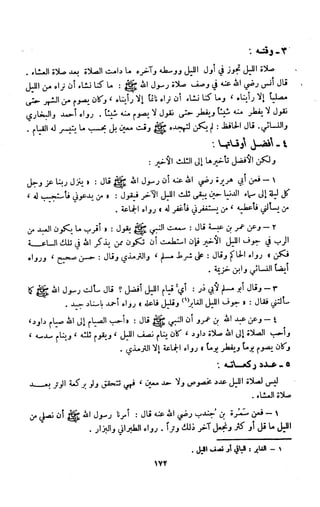 ٣ - وقته :
صلاة الليل تجوز في أول الليل ووسطه وآخره ما دامت الصلاة بعد صلاة العشاء .
قال أنس رضي الله عنه في وصف صلاة رسول الله ﷺ : ما كنا نشاء أن نراه من الليل
مصلياً إلا رأيناه ، وما كنا نشاء أن نراه نائماً إلا رأيناه ، وكان يصوم من الشهر حتى
نقول لا يفطر منه شيئاً ويفطر حتى نقول لا يصوم منه شيئاً . رواه أحمد والبخاري
والنسائي . قال الحافظ : لم يكن لتهجده ﷺ وقت معين بل بحسب ما يتيسر له القيام .
٤ - أفضل أوقاتها :
ولكن الأفضل تأخيرها إلى الثلث الأخير :
١ - فعن أبي هريرة رضي الله عنه أن رسول الله ﷺ قال : « ينزل ربنا عز وجل
كل ليلة إلى سماء الدنيا حين يبقى ثلث الليل الآخر فيقول : « من يدعوني فأستجيب له ،
من يسألني فأعطيه ، من يستغفرني فأغفر له » رواه الجماعة .
٢ - وعن عمرو بن عبسة قال : سمعت النبي ﷺ يقول : « أقرب ما يكون العبد من
الرب في جوف الليل الأخير فإن استطعت أن تكون ممن يذكر الله في تلك الساعة
فكن » رواه الحاكم وقال : على شرط مسلم ، والترمذي وقال : حسن صحيح ، ورواه
أيضاً النسائي وابن خزيمة .
٣ - وقال أبو مسلم لأبي ذر : أي قيام الليل أفضل ؟ قال سألت رسول الله ﷺ كما
سألتني فقال : « جوف الليل الغابر(١) وقليل فاعله » رواه أحمد بإسناد جيد .
٤ - وعن عبد الله بن عمرو أن النبي ﷺ قال : « أحب الصيام إلى الله صيام داود ،
وأحب الصلاة إلى الله صلاة داود ، كان ينام نصف الليل ، ويقوم ثلثه ، وينام سدسه ،
وكان يصوم يوماً ويفطر يوماً » رواه الجماعة إلا الترمذي .
٥ - عدد ركعاته :
ليس لصلاة الليل عدد مخصوص ولا حد معين ، فهي تتحقق ولو بركعة الوتر بعد
صلاة العشاء .
١ - فعن سمرة بن جندب رضي الله عنه قال : أمرنا رسول الله ﷺ أن نصلي من
الليل ما قل أو كثر ونجعل آخر ذلك وتراً . رواه الطبراني والبزار .
١ - الغابر : الباقي أو نصف الليل .
١٧٢